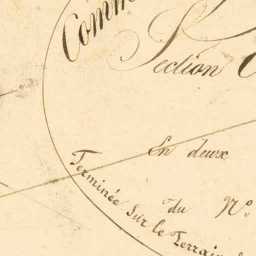 Comm
Section
En deux
du N.o
Terminée sur le Terrain